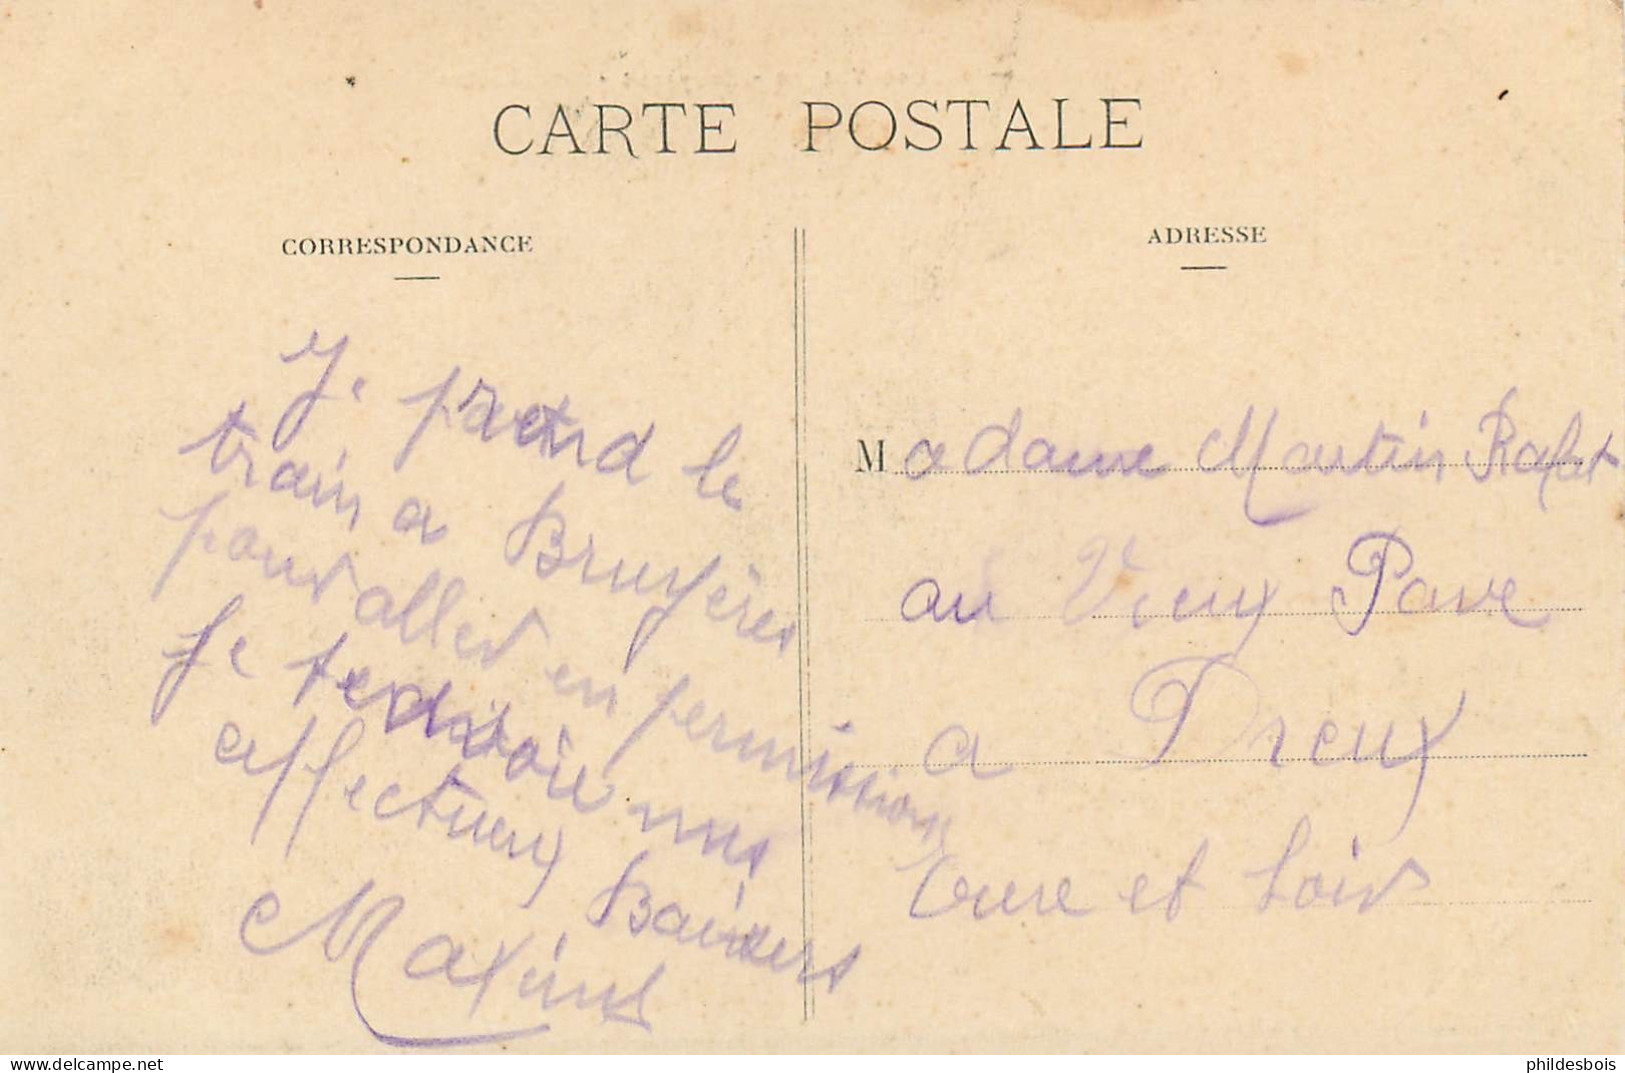 CARTE POSTALE
CORRESPONDANCE
Je prend le
train a Bruyères
pour aller en permission
Je
effectueux Baisers
Maxime
ADRESSE
Madame Martin
au Vieux Pave
a Dreux
Eure et Loir
www.delcampe.net
phildesbois